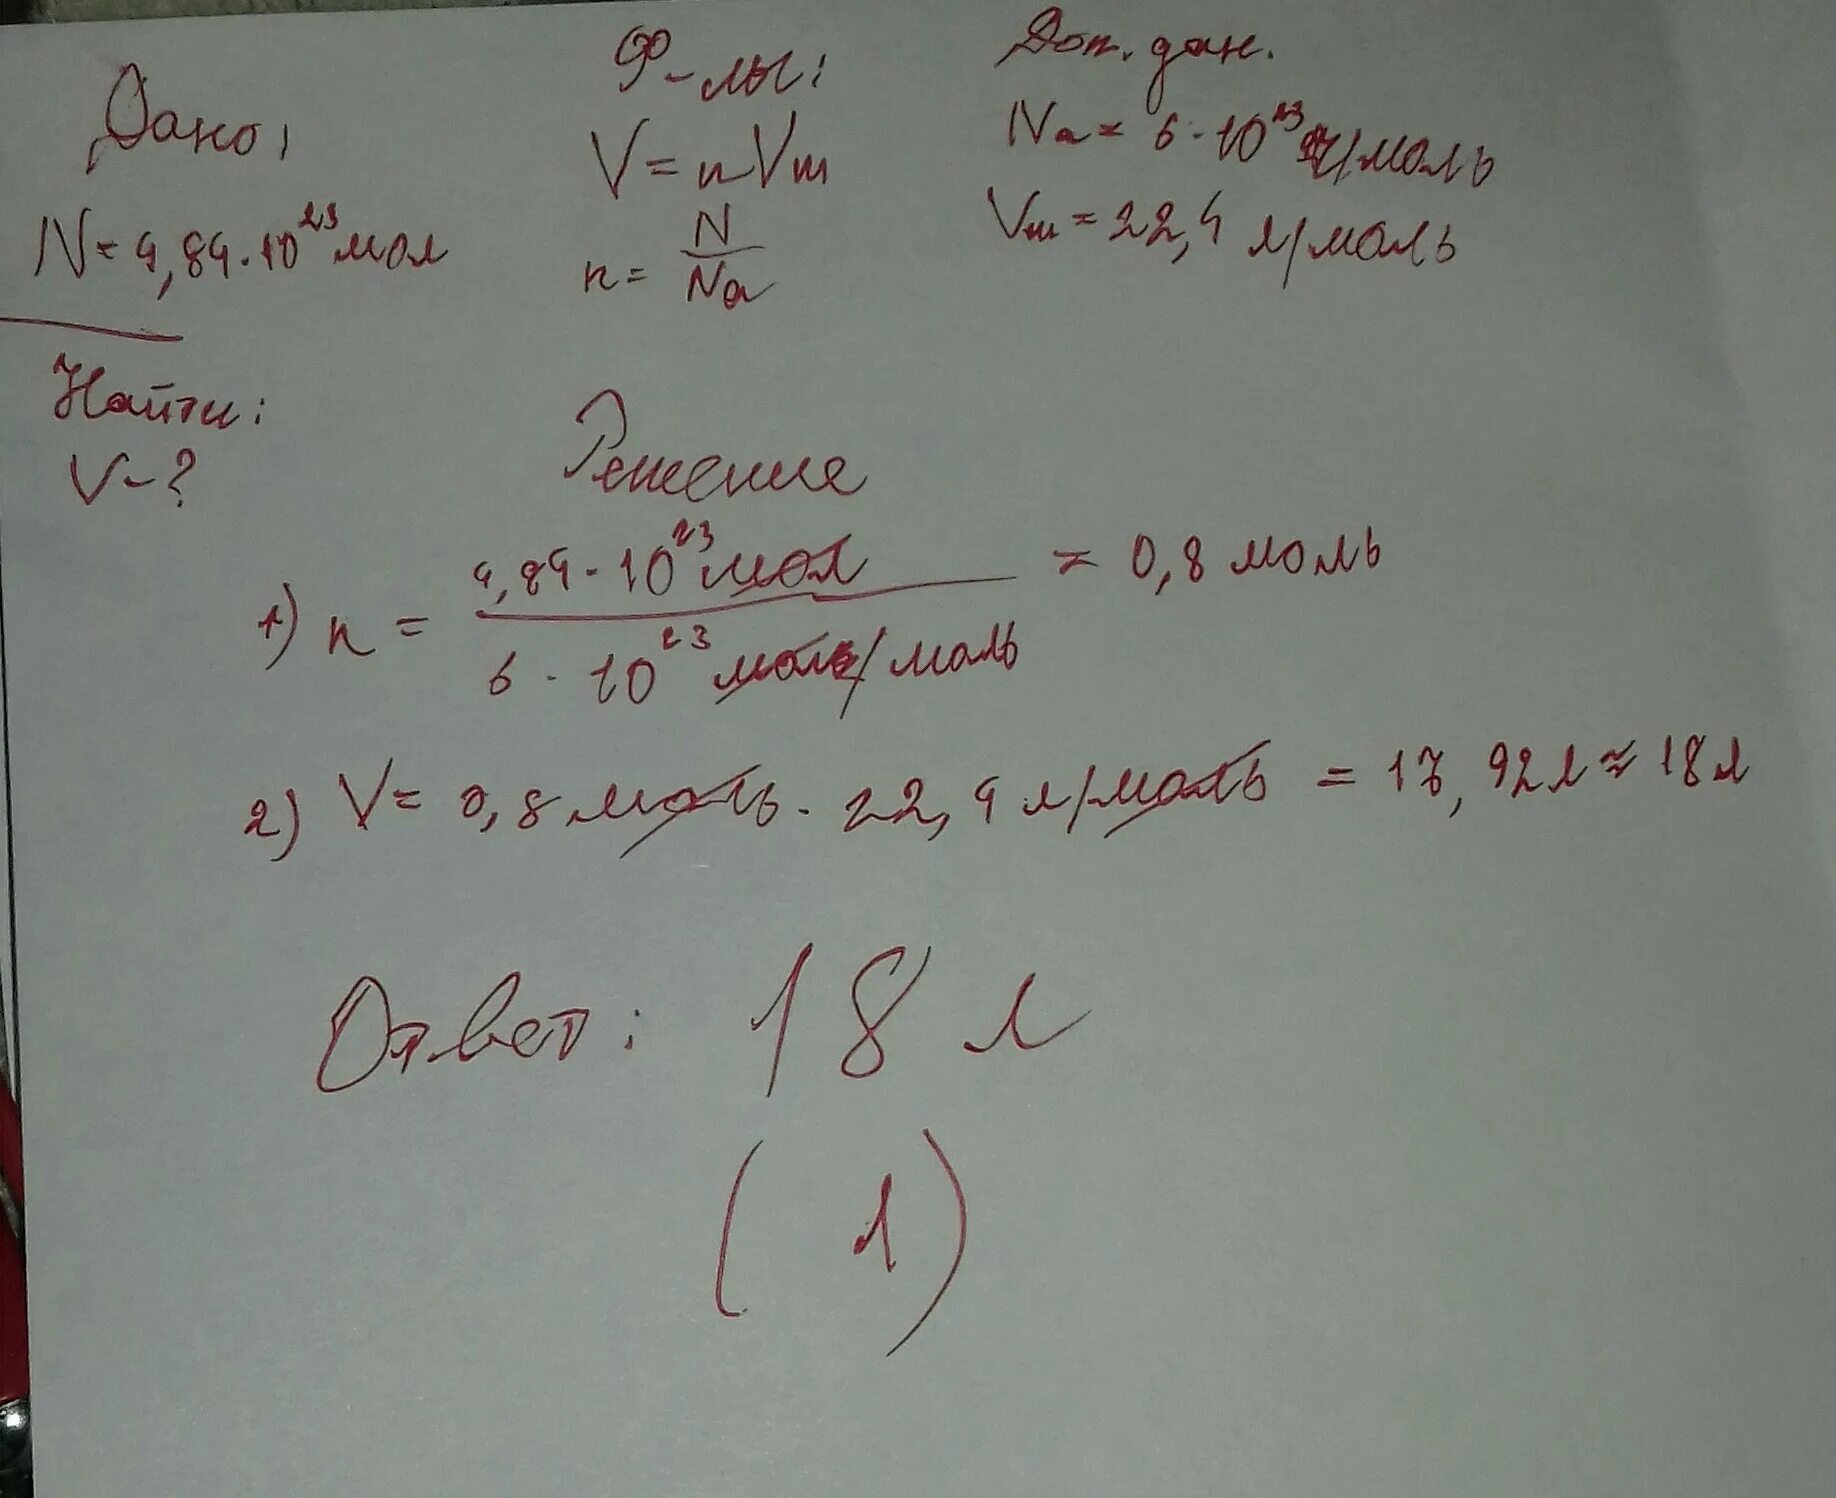 Дано:
N = 4,84 · 10²³ мол
Найти:
V - ?
Ф-лы:
V = nVm
n = N/Na
Доп. дан.
Na = 6 · 10²³ /моль
Vm = 22,4 л/моль
Решение
1) n = 4,84 · 10²³ мол / 6 · 10²³ /моль = 0,8 моль
2) V = 0,8 моль · 22,4 л/моль = 17,92 л ≈ 18 л
Ответ: 18 л
(1)